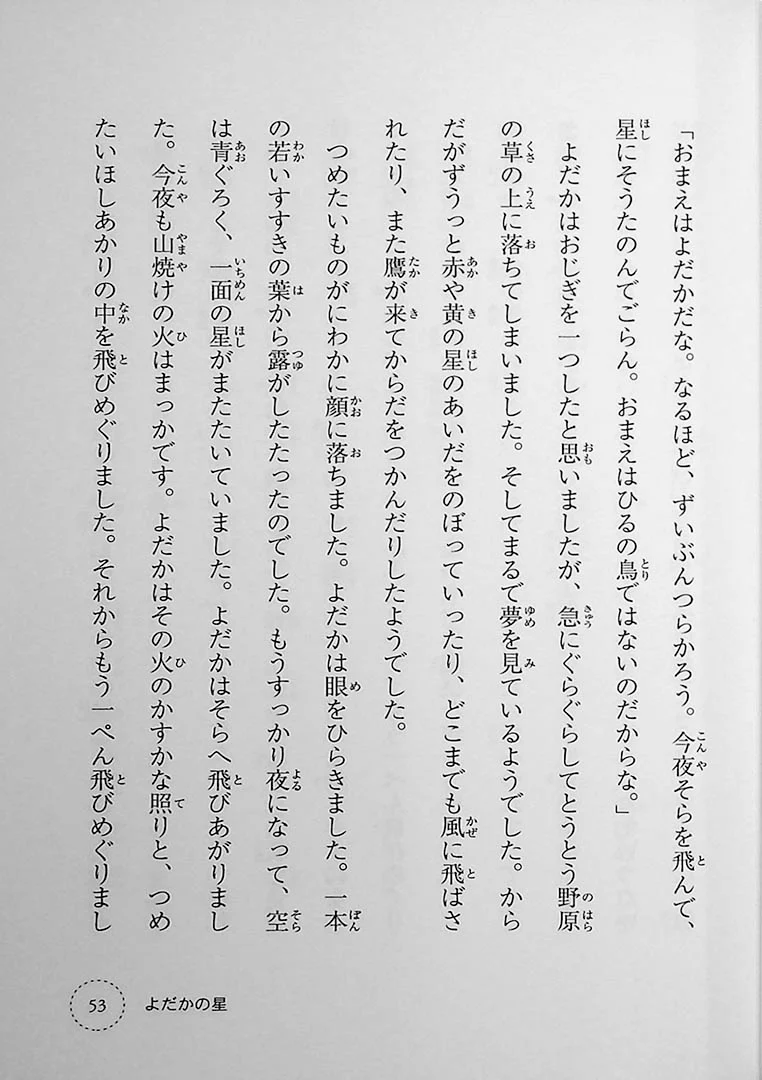 「おまえはよだかだな。なるほど、ずいぶんつらかろう。今夜そらを飛んで、
星にそうたのんでごらん。おまえはひるの鳥ではないのだからな。」
よだかはおじぎを一つしたと思いましたが、急にぐらぐらしてとうとう野原
の草の上に落ちてしまいました。そしてまるで夢を見ているようでした。から
だがずうっと赤や黄の星のあいだをのぼっていったり、どこまでも風に飛ばさ
れたり、また鷹が来てからだをつかんだりしたようでした。
つめたいものがにわかに顔に落ちました。よだかは眼をひらきました。一本
の若いすすきの葉から露がしたたったのでした。もうすっかり夜になって、空
は青ぐろく、一面の星がまたたいていました。よだかはそらへ飛びあがりまし
た。今夜も山焼けの火はまっかです。よだかはその火のかすかな照りと、つめ
たいほしあかりの中を飛びめぐりました。それからもう一ぺん飛びめぐりまし
53 よだかの星